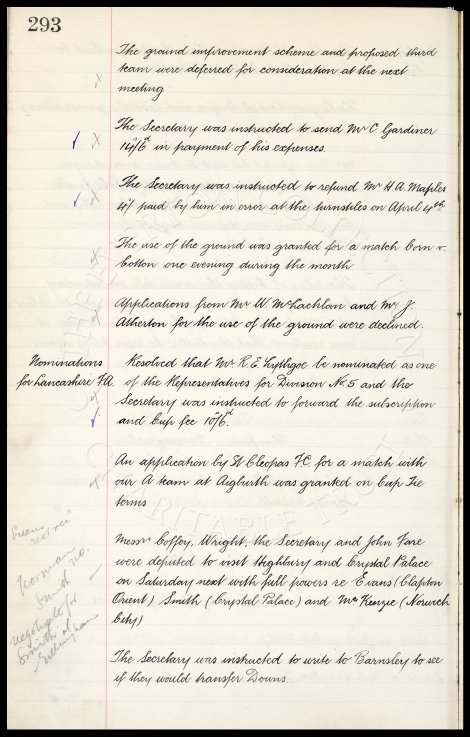 293
The ground improvement scheme and proposed third
team were deferred for consideration at the next
meeting
The Secretary was instructed to send Mr C Gardiner
14/6d in payment of his expenses.
The Secretary was instructed to refund Mr H A Maples
4/- paid by him in error at the turnstiles on April 4th.
The use of the ground was granted for a match Corn v.
Cotton one evening during the month
Applications from Mr W. McLachlan and Mr J.
Atherton for the use of the ground were declined.
Nominations
for Lancashire F.A.
Resolved that Mr R E Lythgoe be nominated as one
of the Representatives for Division No. 5 and the
Secretary was instructed to forward the subscription
and Cup fee 10/6d.
An application by St Cleopas F.C. for a match with
our A team at Aigburth was granted on Cup Tie
terms
Messrs Coffey, Wright, the Secretary and John Fare
were deputed to visit Highbury and Crystal Palace
on Saturday next with full powers re Evans (Clapton
Orient) Smith (Crystal Palace) and McKenzie (Norwich
City)
Norman
Smith no.
negotiate for
Smith of
Gillingham
The Secretary was instructed to write to Barnsley to see
if they would transfer Downs
CHARITABLE TRUST